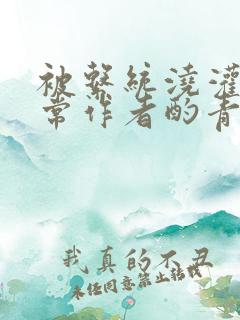 被系统浇灌
常作者酌青
我真的不丑
未经同意禁止转载